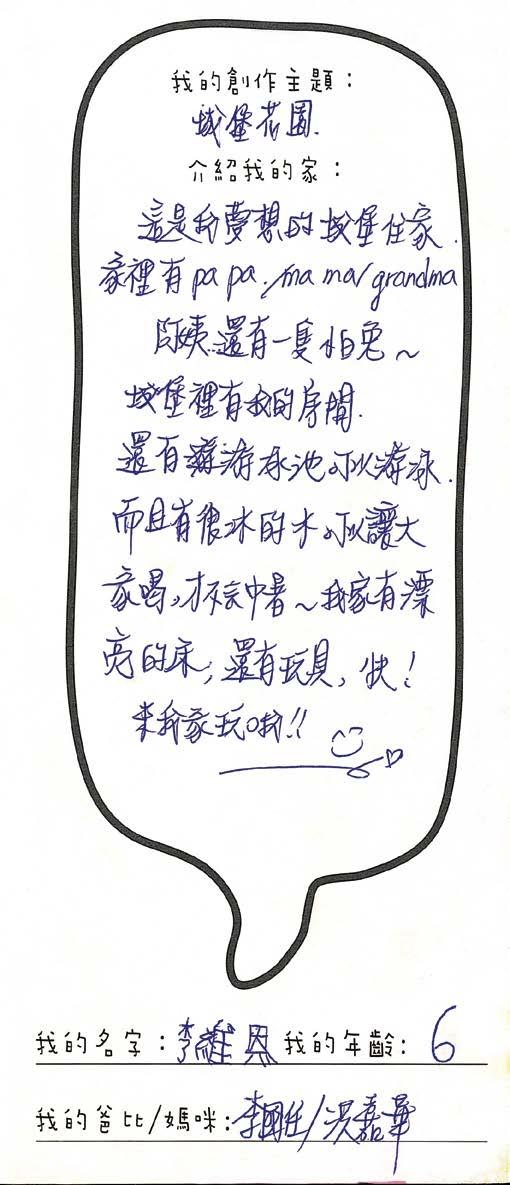 我的創作主題：
城堡花園.
介紹我的家：
這是我夢想的城堡住家.
家裡有papa./mama/grandma
阿姨還有一隻怕兔～
城堡裡有我的房間.
還有游泳池可以游泳.
而且有很冰的水可以讓大
家喝,才不會中暑～我家有漂
亮的床,還有玩具,快!
來我家玩哦!!
我的名字：李維恩 我的年齡: 6
我的爸比/媽咪:李國任/吳嘉華